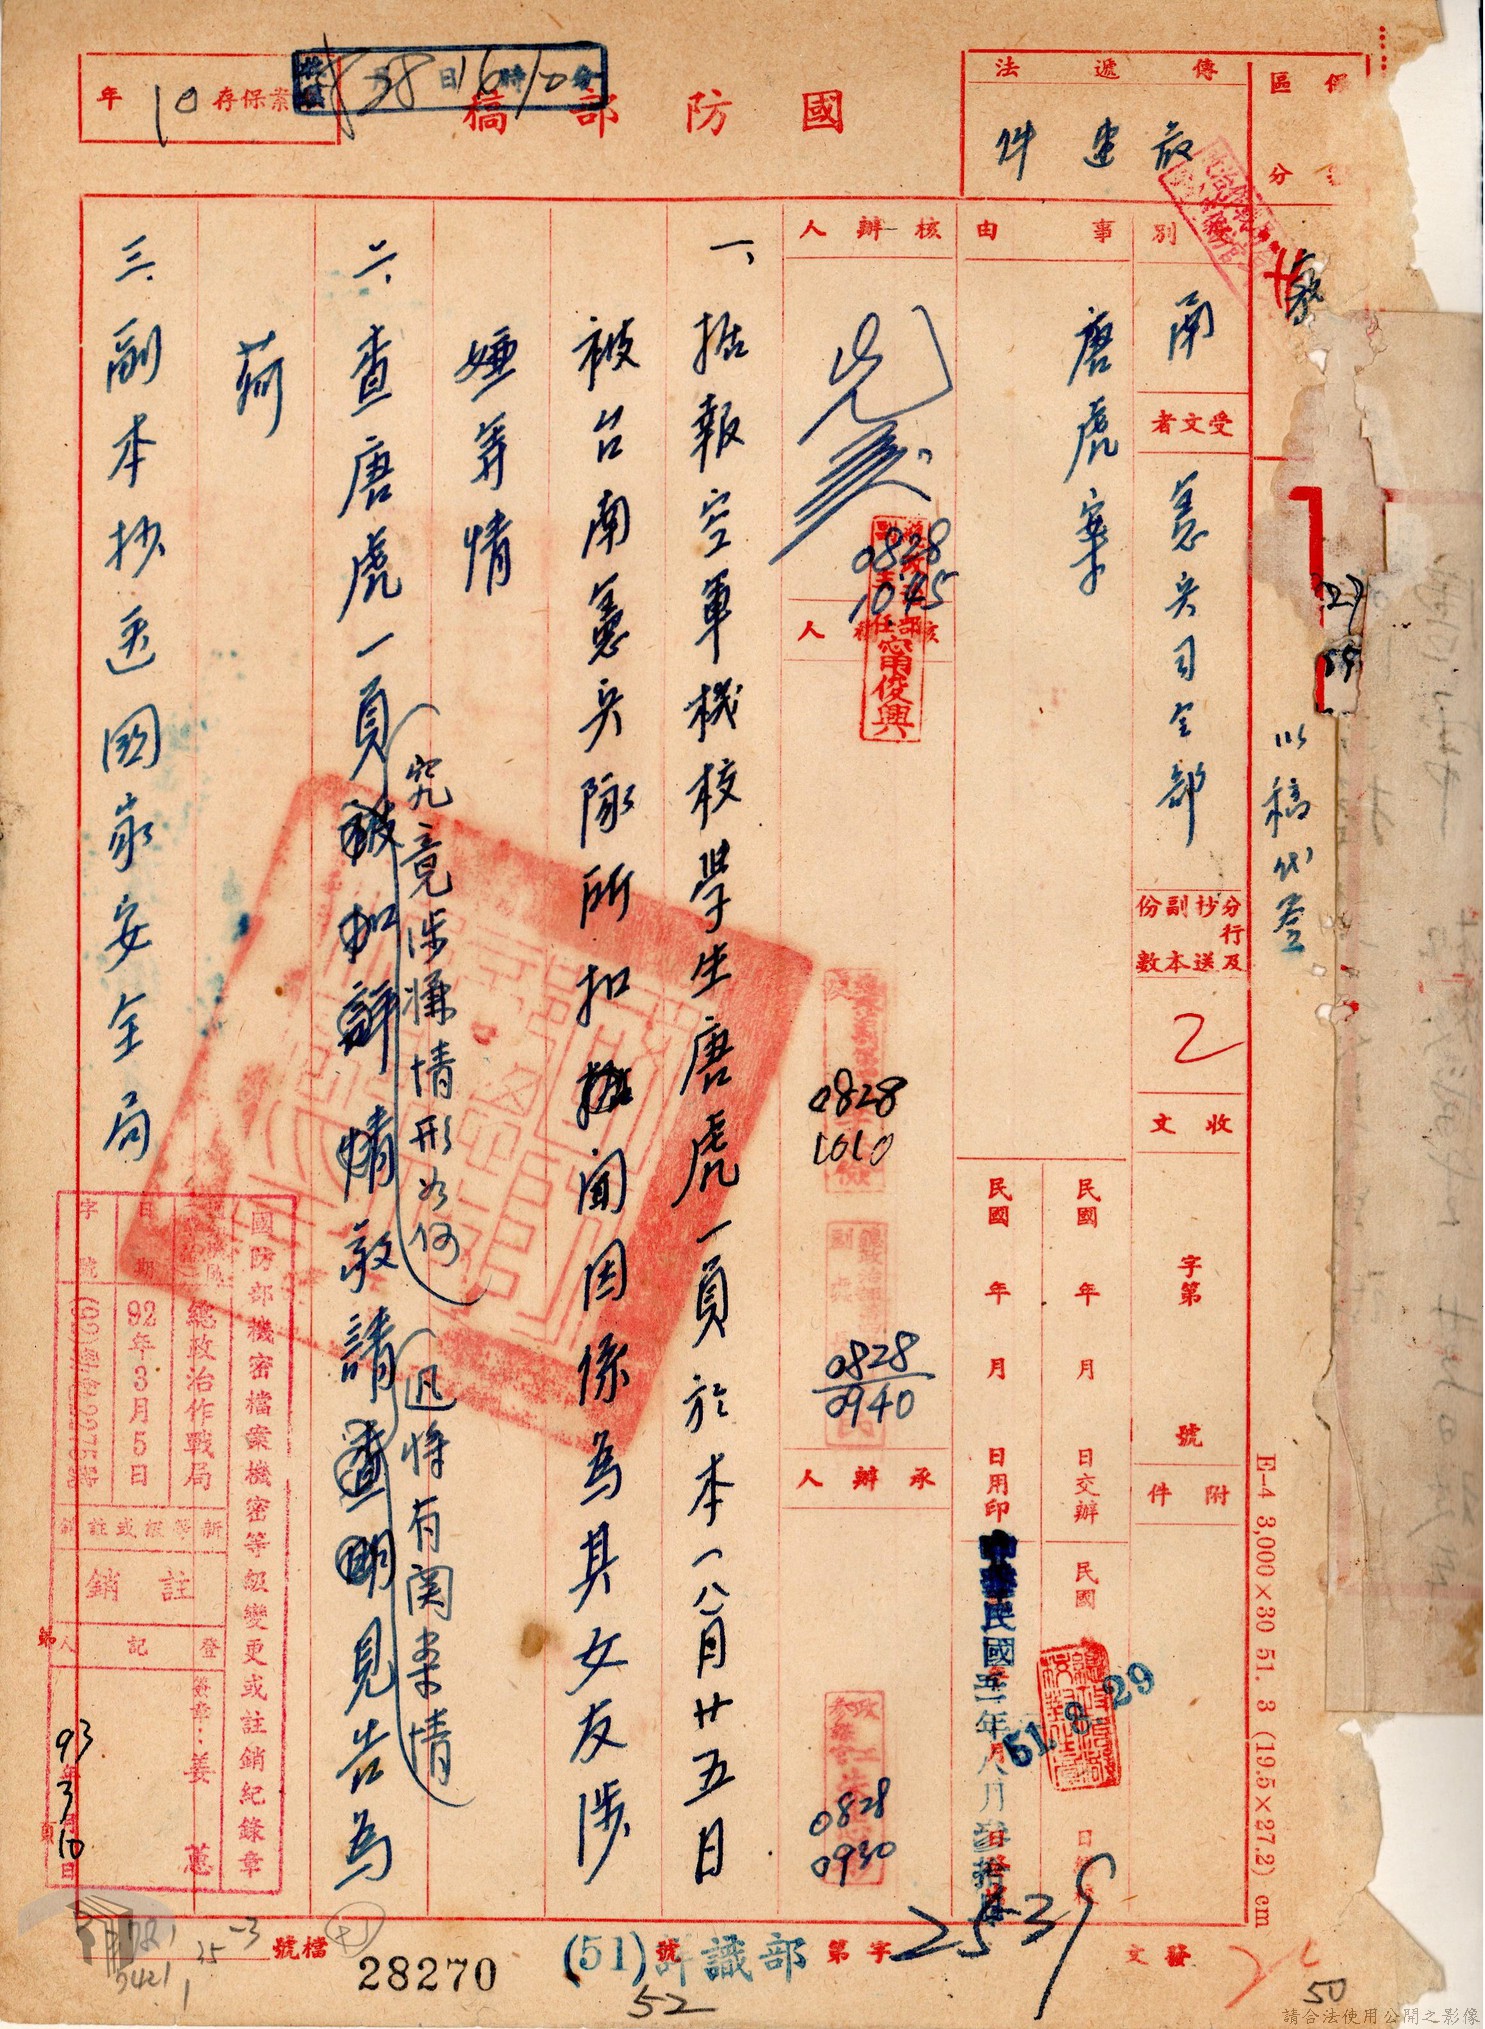 保區
分
傳遞法
最速件
國防部稿
檔案保存
10年
8月28日16時10分
以稿代簽
別
南
受文者
憲兵司令部
分行及
抄送
副本
份數
2
收文
字第
號
附件
事由
唐虎案
民國 年 月 日交辦
民國 年 月 日用印
民國
中華民國五一年八月
51.8.29
核辦人
0828
1045
甯俊興
核稿人
0828
1010
0828
0940
承辦人
0828
0930
一、據報空軍機校學生唐虎一員於本(八)月廿五日
被台南憲兵隊所扣聞因係為其女友涉
嫌等情
二、查唐虎一員究竟涉嫌情形如何敬請迅將有関案情見告為
荷
三、副本抄送國家安全局
國防部機密檔案機密等級變更或註銷紀錄章
總政治作戰局
日期
92年3月5日
字號
新等級或註銷
註銷
登記人
簽章：姜蕙
93年3月10日
E-4 3,000×30 51. 3 (19.5×27.2) cm
發文
字第
2539
號
(51)
52
檔號
28270
50
請合法使用公開之影像